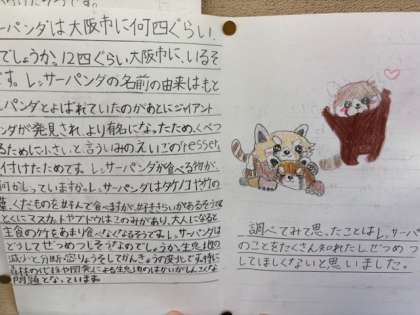 パンダは大阪市に何匹ぐらい
でしょうか。12匹ぐらい大阪市に、いるそ
です。レッサーパンダの名前の由来はもと
パンダとよばれていたのがあとにジャイアント
ンダが発見され、より有名になったため、くべつ
るために小さいと言ういみのえいごのresser
付けたためです。レッサーパンダが食べる物が、
何かしっていますか。レッサーパンダはタケノコやササの
葉くだものを好んで食べますが、好ききらいがあるそうで
とくにマスカットやブドウはこのみがあり、大人になると
主食の竹をあまり食べなくなるそうです。レッサーパンダは
どうしてぜつめつしそうなのでしょうか。生息地の
減少と分断、密りょうそしてかんきょうの変化です。特に
森林の
問題となっています。
調べてみて思ったことはレッサーパ
のことをたくさん知れたしぜつめつ
してほしくないと思いました。